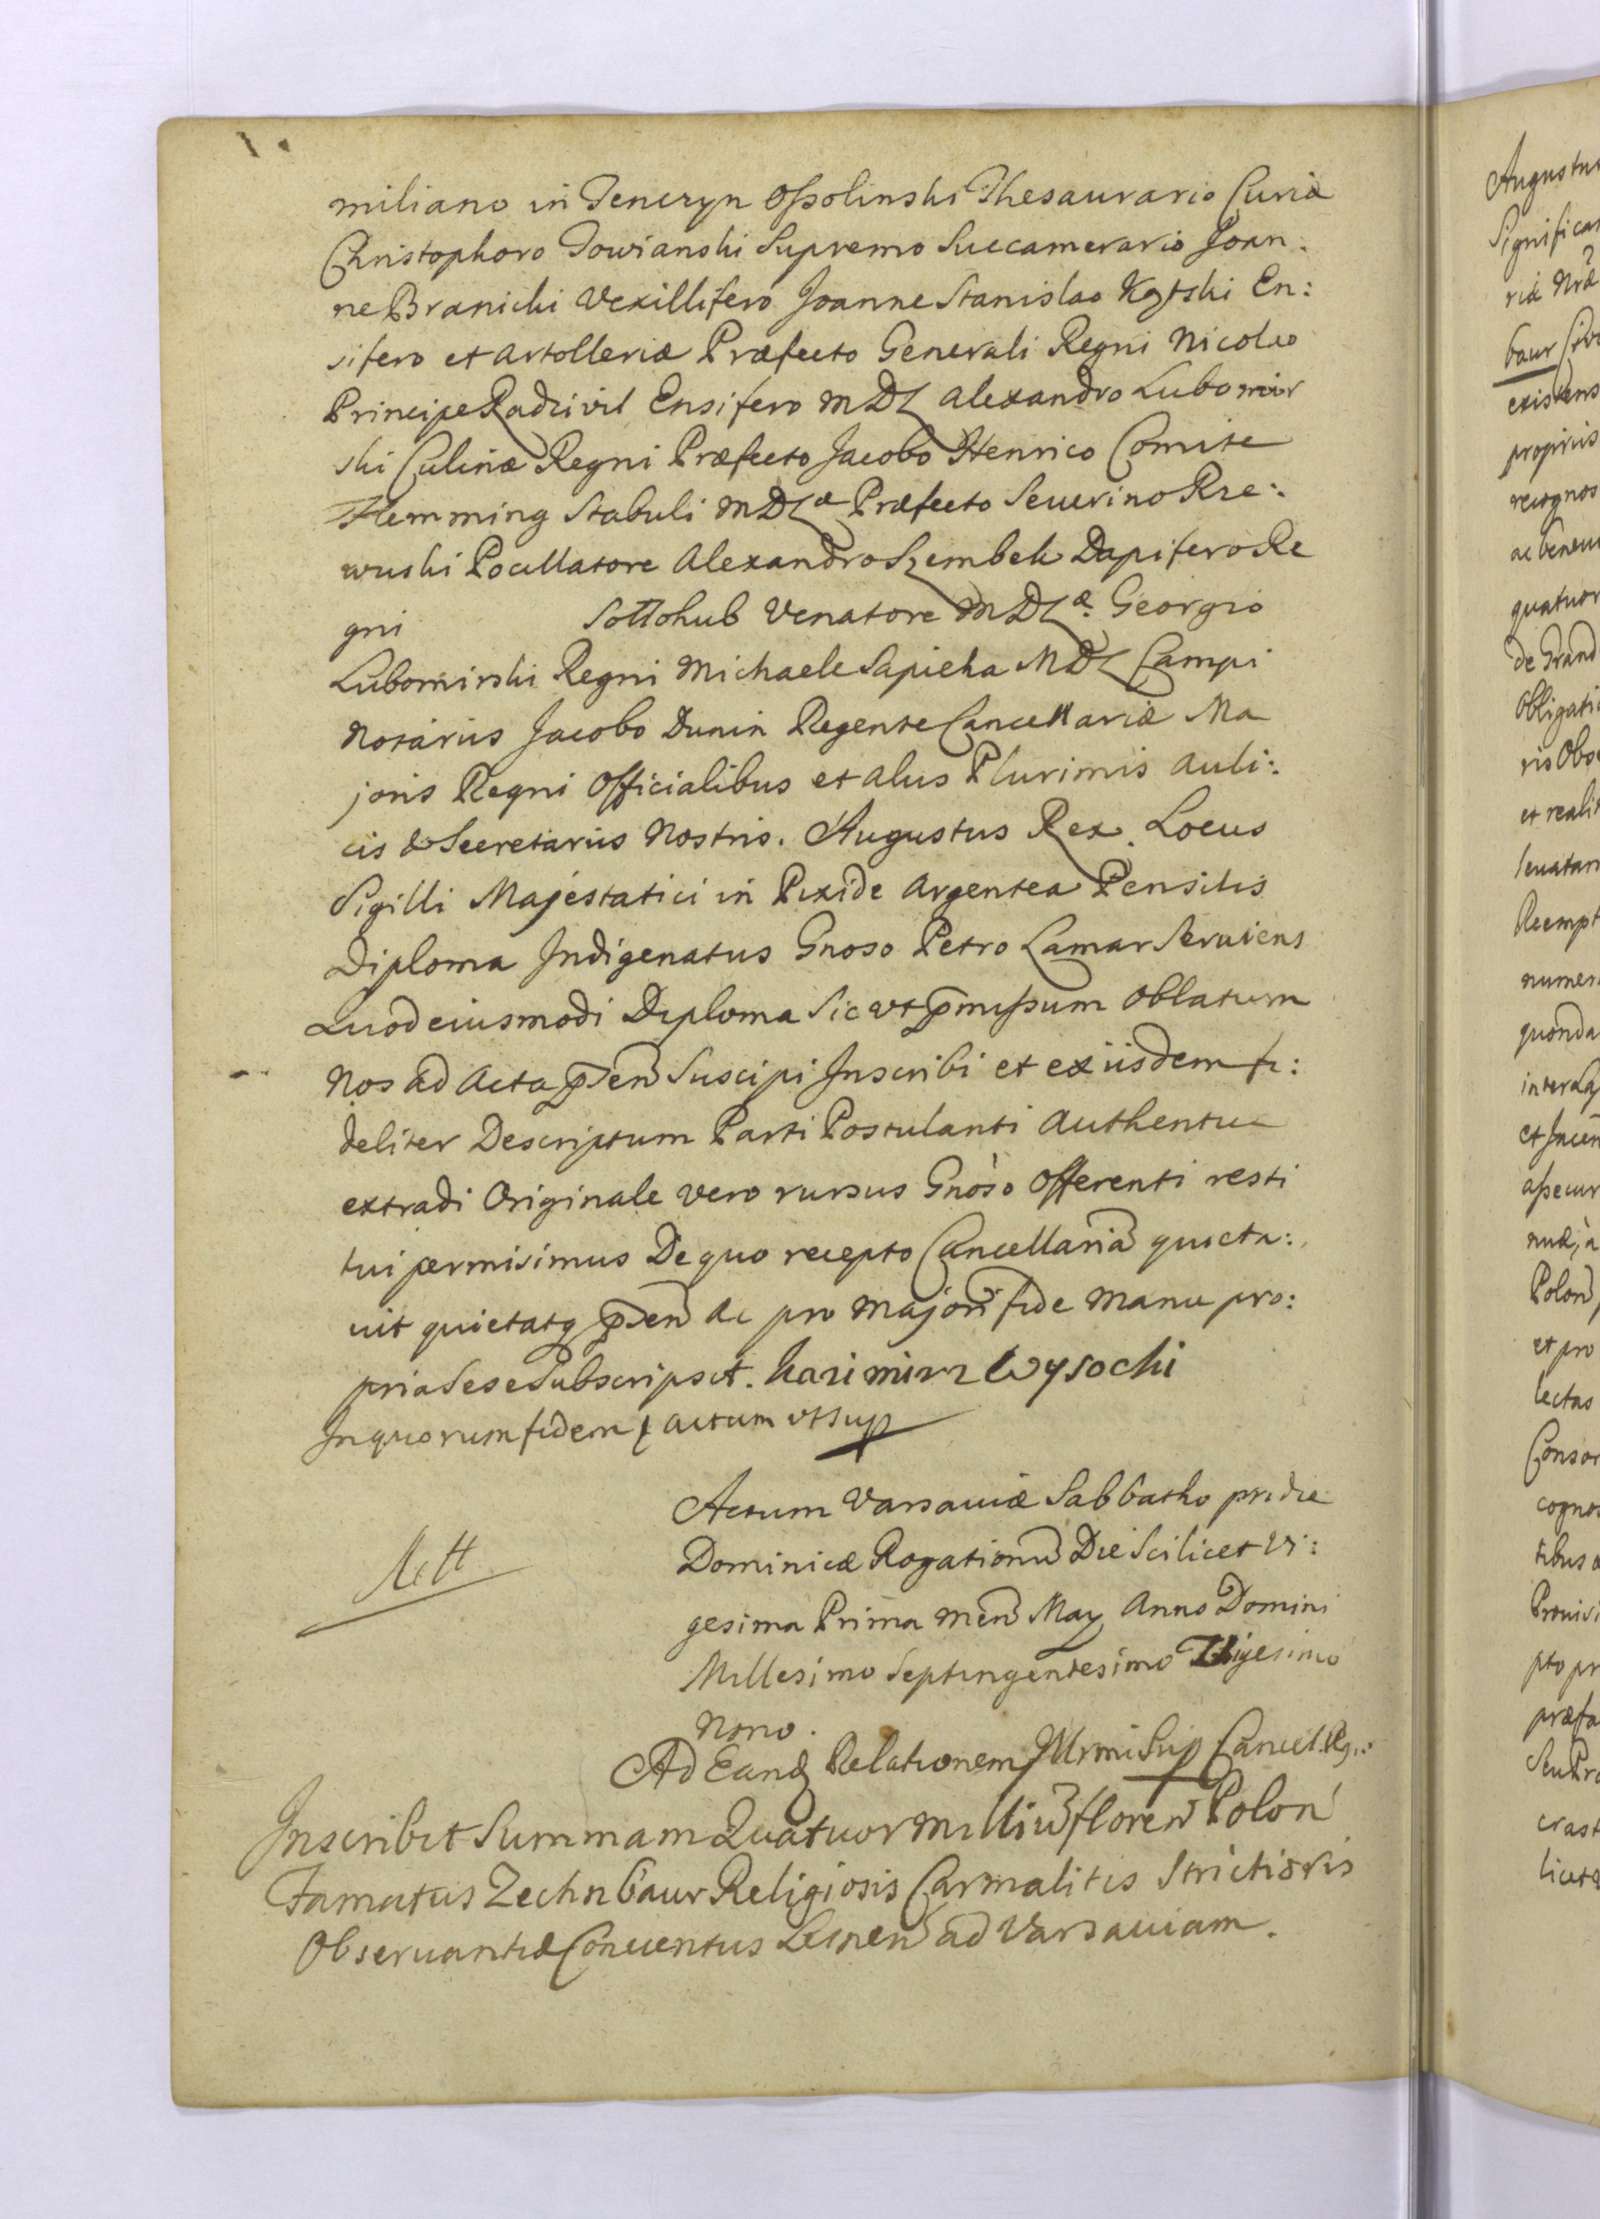 miliano in Tenczyn Ossolinski Thesaurario Curiæ
Christophoro Towianski Supremo Succamerario Joan:
ne Branicki Vexillifero Joanne Stanislao Kątski En:
sifero et Artolleriæ Præfecto Generali Regni Nicolao
Principe Radzivil Ensifero MDL Alexandro Lubomir
ski Culinæ Regni Præfecto Jacobo Henrico Comite
Flemming Stabuli MDLæ Præfecto Severino Rze:
wuski Pocillatore Alexandro Szembek Dapifero Re
gni Sollohub Venatore MDLæ Georgio
Lubomirski Regni Michaele Sapieha MDL Campi
Notariis Jacobo Dunin Regente Cancellariæ Ma
joris Regni Officialibus et aliis Plurimis Auli:
cis & Secretariis Nostris. Augustus Rex. Locus
Sigilli Majestatici in Pixide Argentea Pensilis
Diploma Indigenatus Gnoso Petro Lamar Serviens
Quod eiusmodi Diploma Sic ut p̄missum Oblatum
Nos ad Acta p̄sen̄ Suscipi Inscribi et ex iisdem fi:
deliter Descriptum Parti Postulanti Authentice
extradi Originale vero rursus Gnoso Offerenti resti
tui permisimus De quo recepto Cancellariā quieta:
vit quietatq p̄sen̄ Ac pro Majori fide Manu pro:
pria Sese Subscripsit. Kazimirz Wysocki
In quorum fidem & actum ut sup
Actum Varsaviæ Sabbatho pridie
Dominicæ Rogationū Die Scilicet Vi:
gesima Prima Men̄ May Anno Domini
Millesimo Septingentesimo Trigesimo
Nono.
Ad Eand Relationem Illrmi Sup Cancel. Rg.:
Inscribit Summam Quatuor Milliū floren̄ Polon
Famatus Zechnbaur Religiosis Carmalitis Strictioris
Observantiæ Conventus Lesnen̄ ad Varsaviam.
Augustus
Significa
riæ Nræ
baur
existens
propriis
recognos
ac benevo
quatuor
de Grand
Obligati
ris Obs
et realit
numer
quonda
inter
et Jacen
assecur
Polon
et pro
lectas
Conso
cognos
tibus
Provisi
pto pr
præfa
Seu Pro
crast
licet